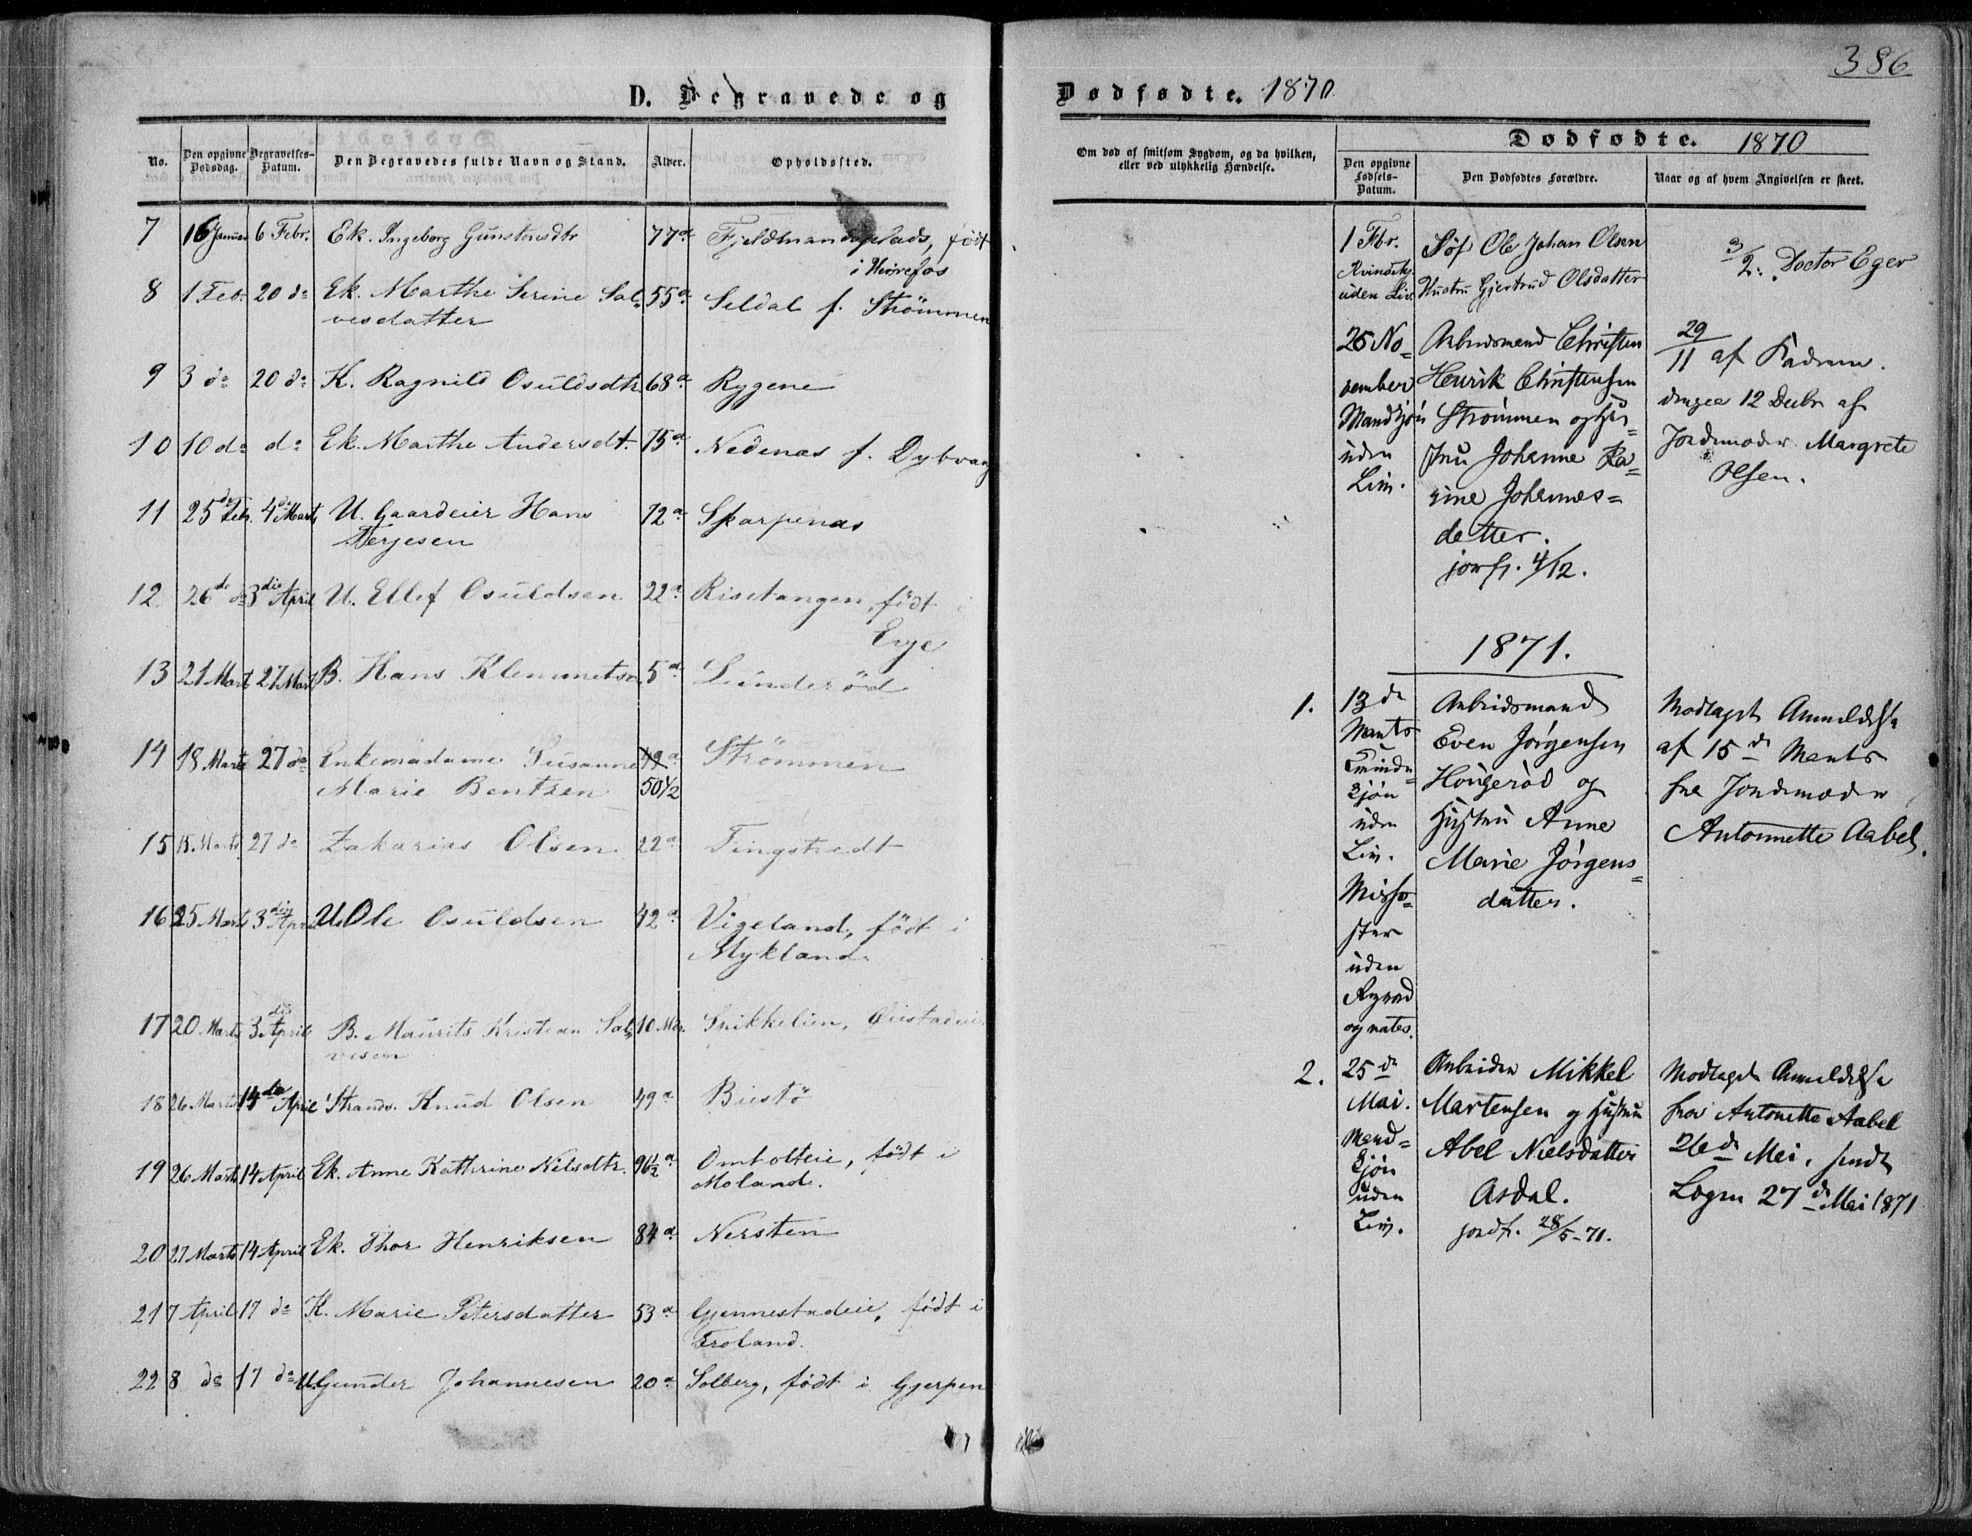 D. Begravede og
No.
Den opgivne Dødsdag.
Begravelses-Datum.
Den Begravedes fulde Navn og Stand.
Alder.
Opholdssted.
7 16 Januar 6 Febr. Ek. Ingeborg Gunstensdtr 77 a. Fjeldmandsplads, født
i Herrefos
8 1 Feb. 20 do Ek. Marthe Serine Sal- 55 a. Seldal f. Strömmen
vesdatter
9 3 do 20 do K. Ragnild Osuldsdtr 68 a. Rygene
10 10 do do Ek. Marthe Andersdt. 75 a. Nedenas f. Dybvaag
11 25de Febr. 4de Marts U. Gaardeier Hans 72 a. Skarpenas
Terjesen
12 26de do 3die April U. Ellef Osuldsen 22 a. Risetangen, født i
Evje
13 21 Marts 27 Marts B. Hans Klemmetsen 5 a. Lunderöd
14 18 Marts 27 do Enkemadame Susanne 49 a. Strömmen
Marie Bentzen 50 1/2
15 15. Marts 27 do Zakarias Olsen 22 a. Tingstvedt
16 25 Marts 3die April U. Ole Osuldsen 42 a. Vigeland, födt i
Mykland.
17 20 Marts 3die April B. Maurits Kristian Sal- 10 Mdr. Spikkelien, Øiestadeie
vesen
18 26 Marts 14de April Strands. Knud Olsen 49 a. Biestö
19 26 Marts 14 April Ek. Anne Kathrine Nilsdtr. 96 1/2 a. Omholteie, födt i
Moland.
20 27 Marts 14 April Ek. Thor Henriksen 84 a. Nersten
21 7 April 17 do K. Marie Petersdatter 53 a. Gjennestadeie, födt i
Froland.
22 8 do 17 do U. Gunder Johannesen 20 a. Solberg, födt i Gjerpen
386
Dødfødte. 1870
Om død af smitsom Sygdom, og da hvilken,
eller ved ulykkelig Hændelse.
Dødfødte. 1870
Den opgivne Fødsels-Datum.
Den Dødfødtes Forældre.
Naar og af hvem Angivelsen er skeet.
1 Fbr.
Kvindekj.
uden Liv.
Søf Ole Johan Olsen
Hustru Gjertrud Olsdatter
3/2. Doctor Eger
25 No-
vember
Mandkjøn
uden
Liv.
Arbeidsmand Christen
Henrik Christensen
Strømmen og Hu-
stru Johanne Ka-
rine Johannes-
datter.
jordf. 4/12.
29/11 af Faderen.
12 Decbr af
Jordemoder Margrete
Olsen.
1871.
1.
13de
Marts
Qvinde-
kjøn
uden
Liv.
Misfo-
ster
uden
Rygrad
og nates.
Arbeidsmand
Even Jörgensen
Hougeröd og
Hustru Anne
Marie Jörgens-
datter.
Modtaget Anmeldelse
af 15de Marts
fra Jordemoder
Antonnette Aabel.
2.
25de
Mai.
Mand-
kjøn
uden
Liv.
Arbeider Mikkel
Martensen og Hustru
Abel Nielsdatter
Asdal.
jordf. 28/5-71.
Modtaget Anmeldelse
fra Antonette Aabel
26de Mai, sendt
Lagm 27de Mai 1871